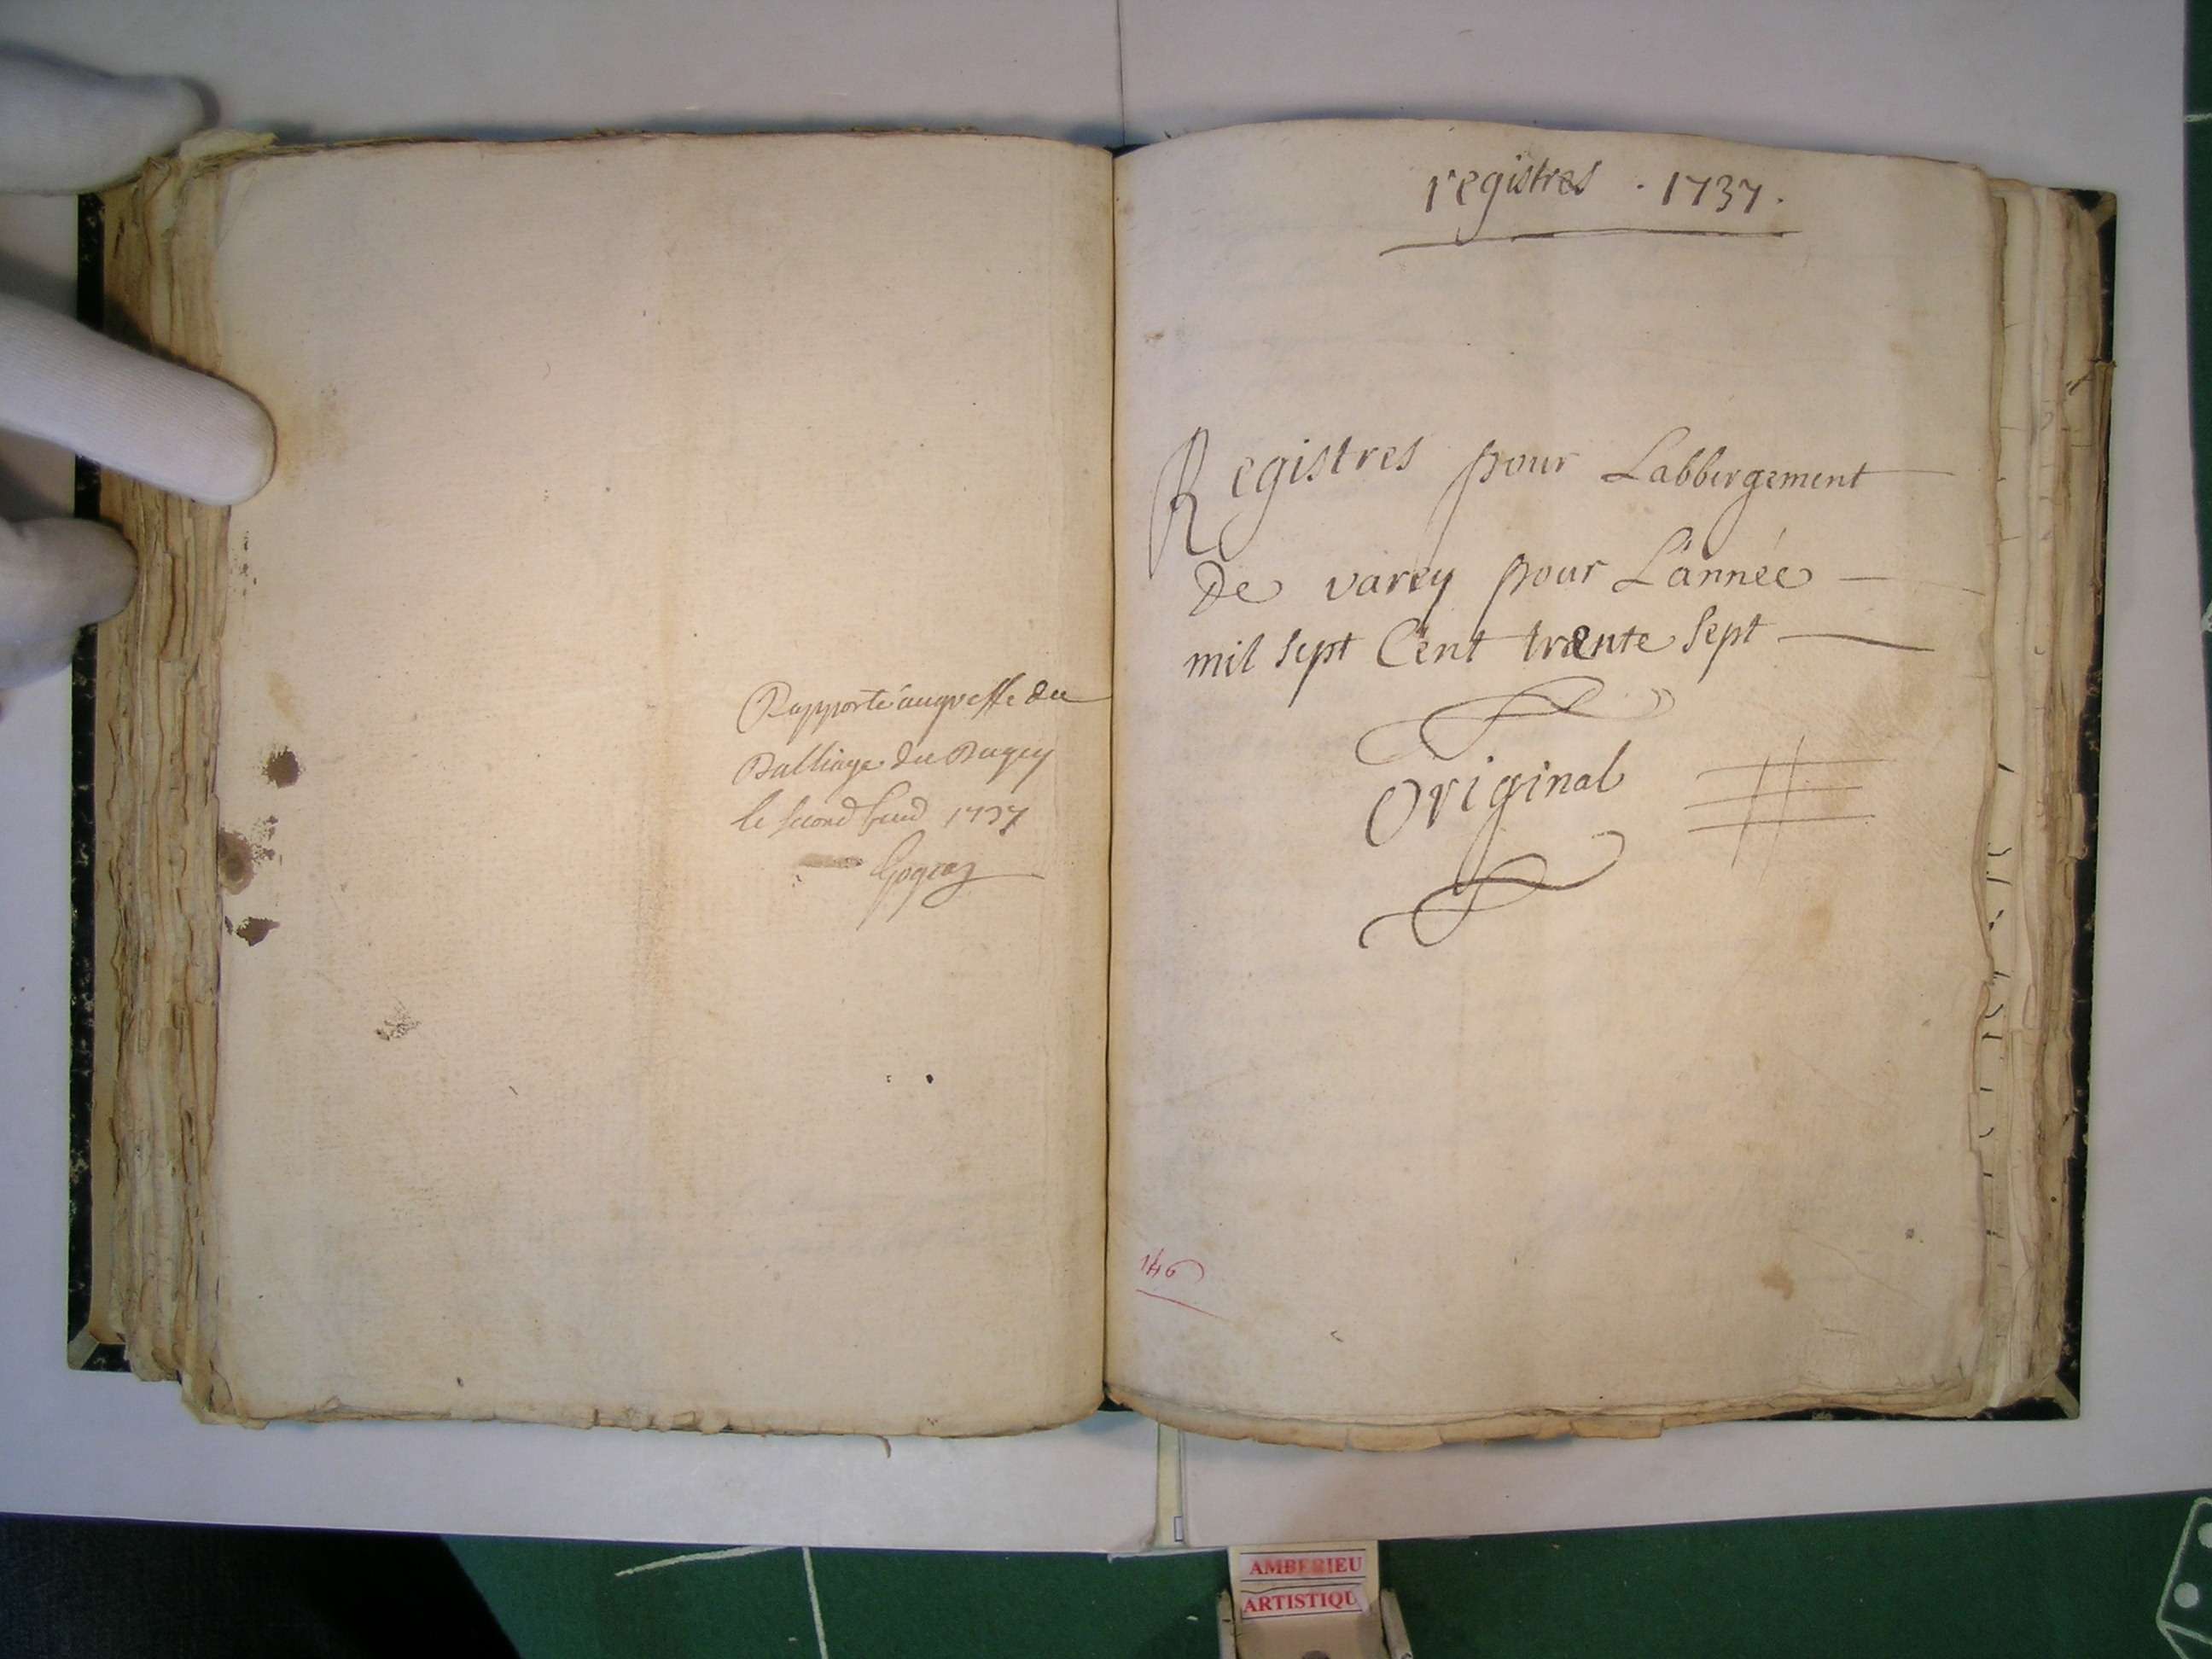 Rapporté au greffe du
Balliage du Bugey
le second 1737
registres . 1737.
Registres pour Labbergement
De varey pour L'année
mil sept Cent trente sept
Original
146
AMBERIEU
ARTISTIQU